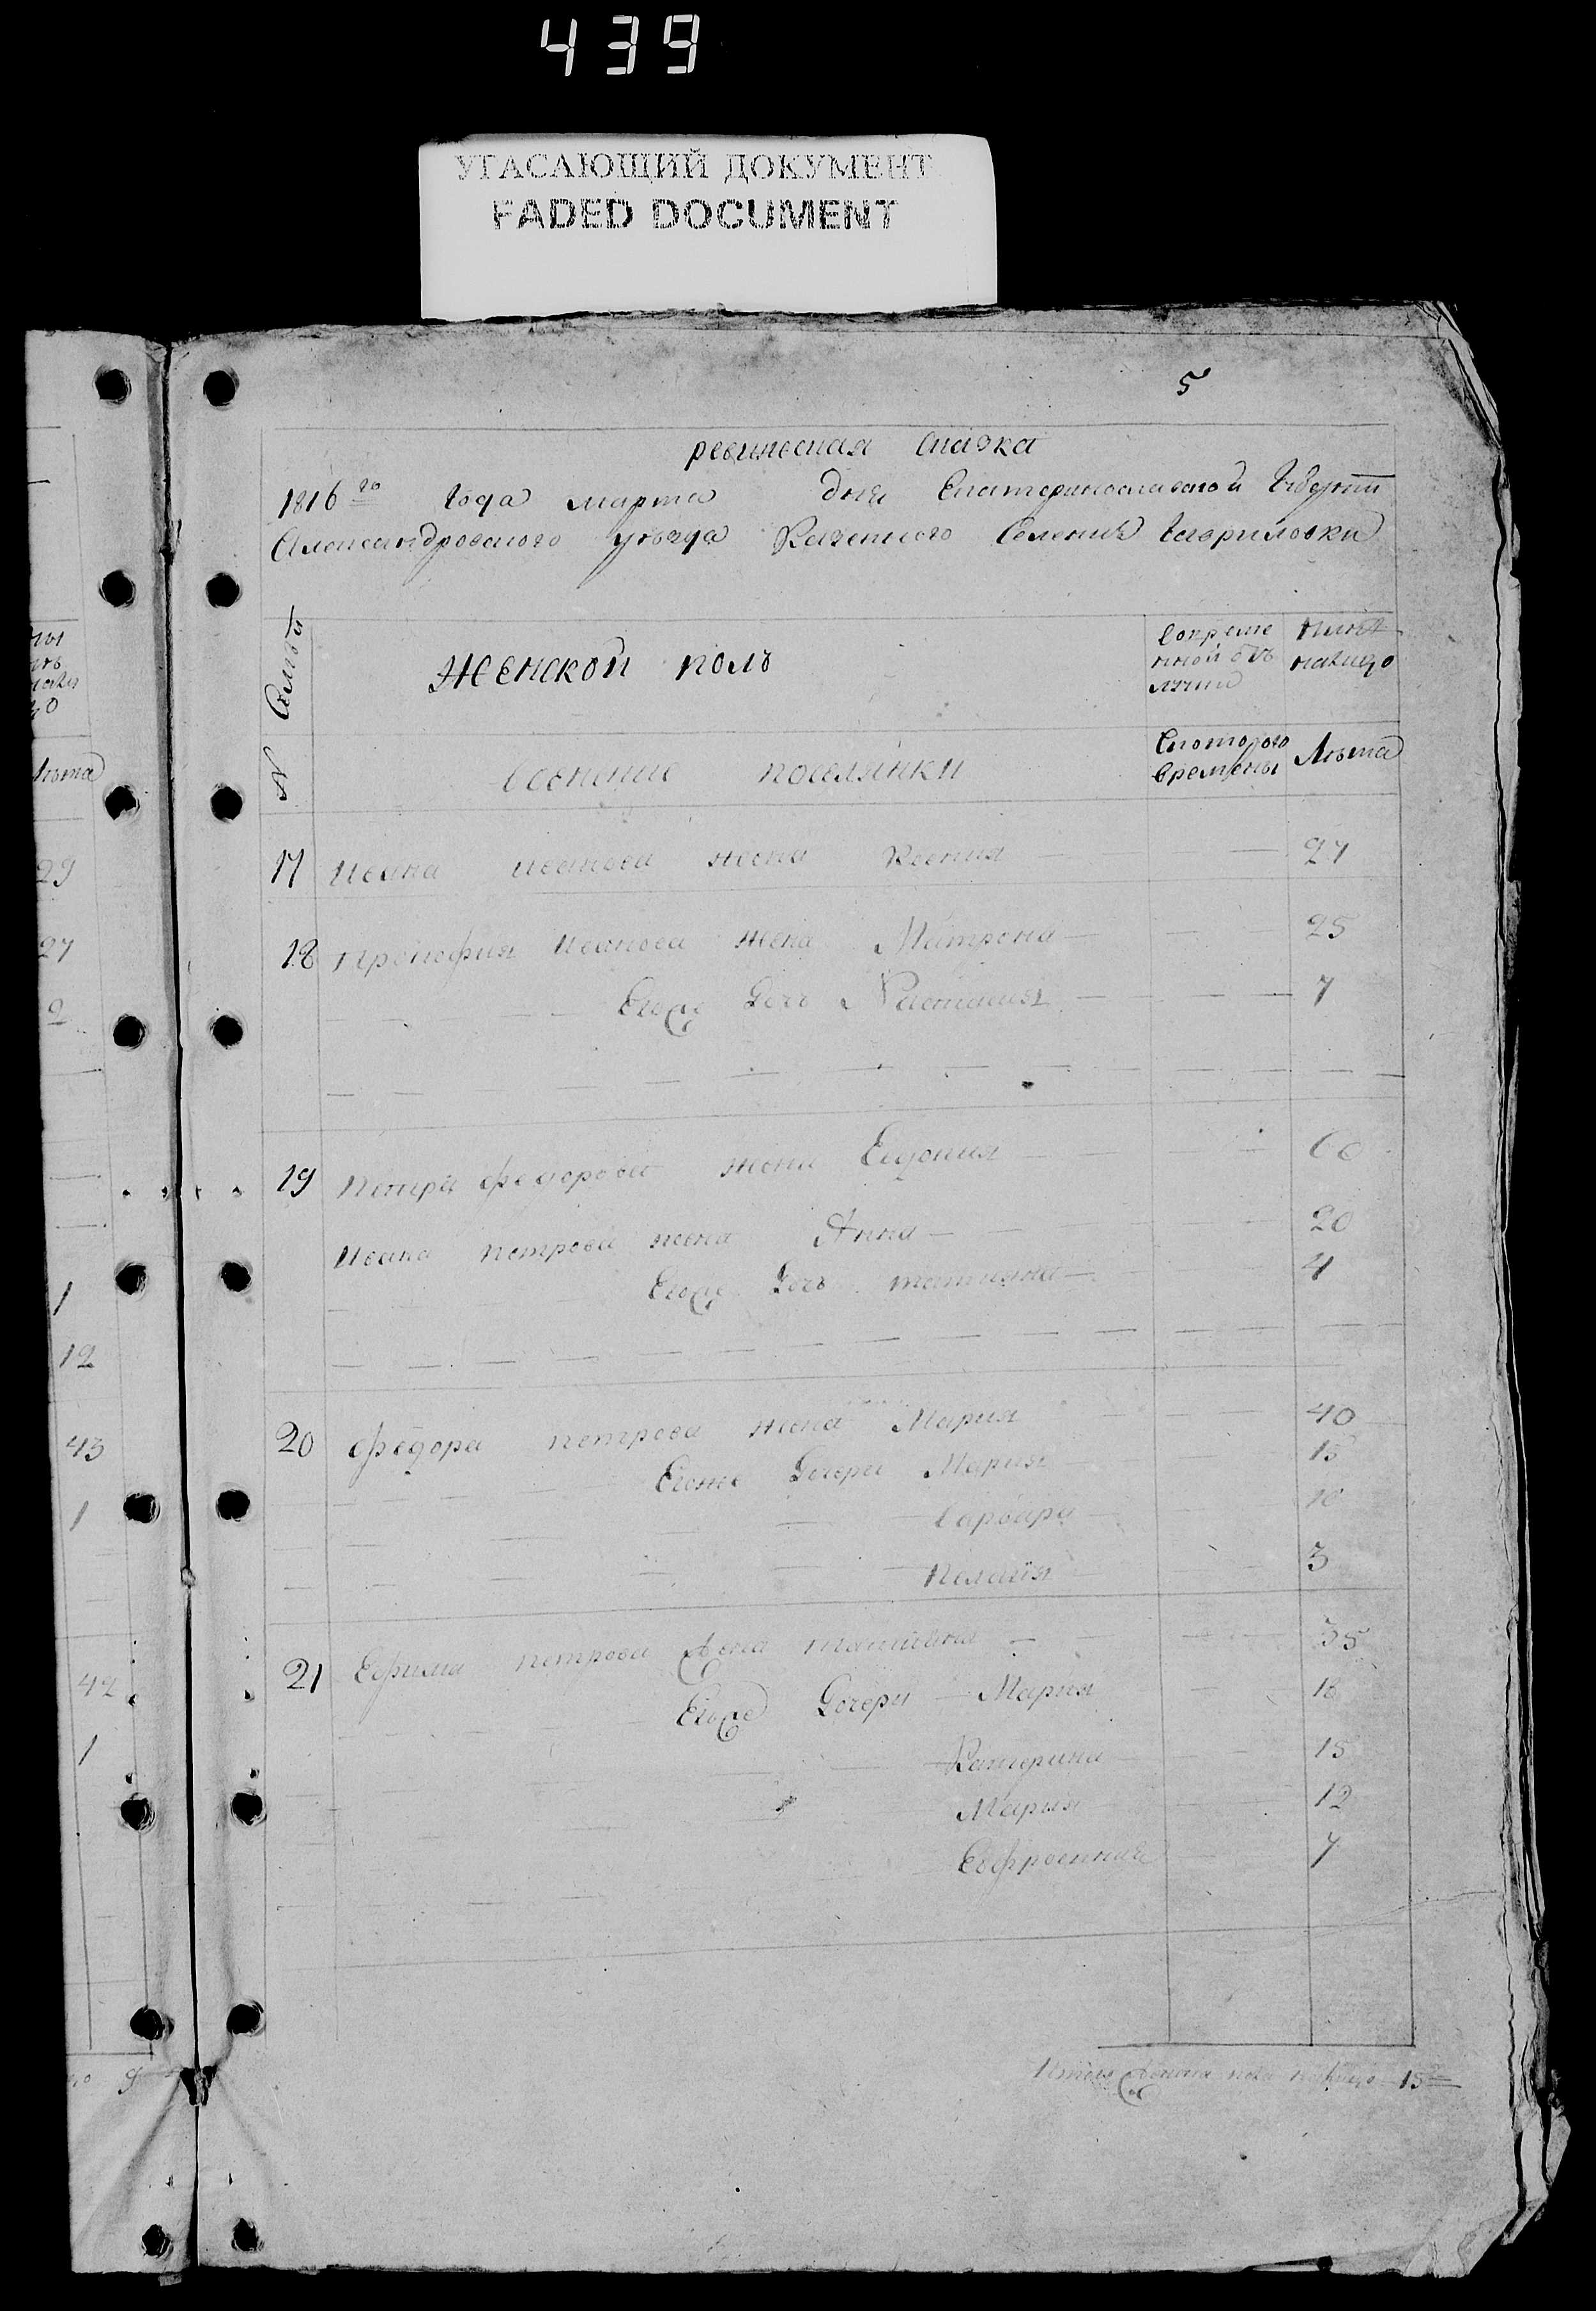 439
УГАСАЮЩИЙ ДОКУМЕНТ
FADED DOCUMENT
5
ревижская Сказка
1816го Года марта дня Екатеринославской Губернии
Александровского уѣзда Казенного Селения Гавриловки
N Семьи
Женской полъ
Во временной отлучки
Ныне налицо
Военные поселянки
Скоторого времены
Лѣта
17 Ивана иванова жена Ксения 27
18 Прокофия Иванова жена Матрона 25
Егоже Дочь Настасия 7
19 Петра федорова жена Евдокия 60
Ивана петрова жена Анна 20
Егоже Дочь татияна 4
20 федора петрова жена Мария 40
Егоже Дочери Мария 15
варвара 10
пелагия 3
21 Ефима петрова жена татияна 35
Егоже Дочери Мария 18
Катерина 15
Мария 12
Евфросиния 7
Итого женска пола налицо 15
Лѣта
29
27
2
1
12
43
1
42
1
9